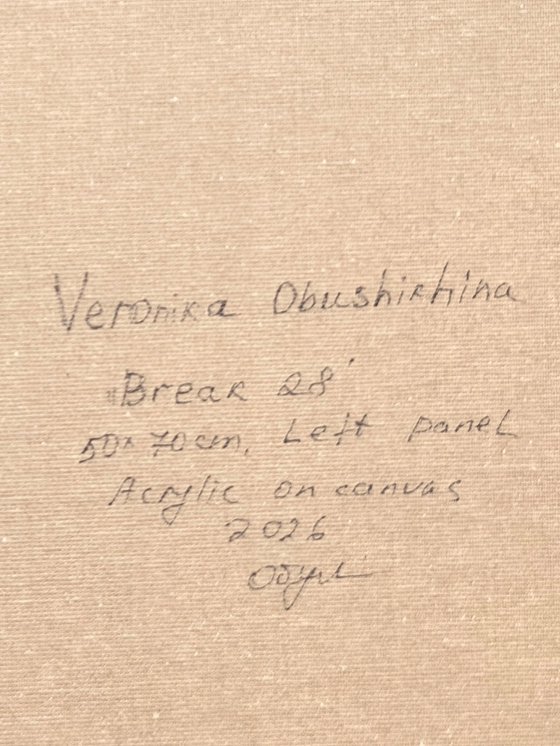 Veronika Obushikhina
"Break 28"
50x70cm, Left panel
Acrylic on canvas
2026